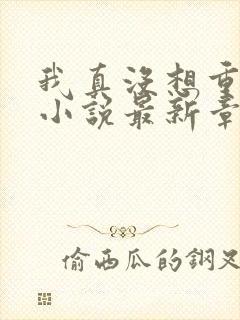 我真沒想重
小說最新章
偷西瓜的鋼叉